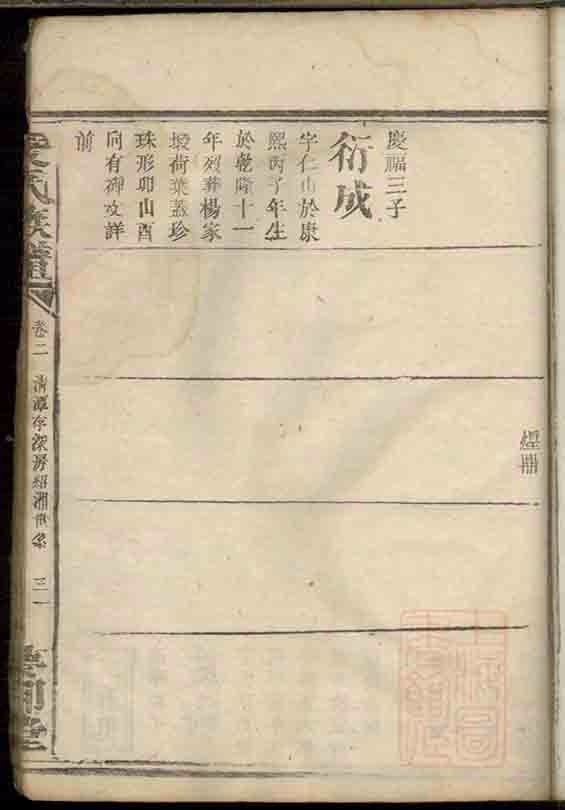 慶福三子
衍成
字仁山於康
熙丙子年生
於乾隆十一
年歿葬楊家
塅荷葉蓋珍
珠形卯山酉
向有碑攷詳
前
氏族譜
卷二
清潭存深房紹湘世系
三一